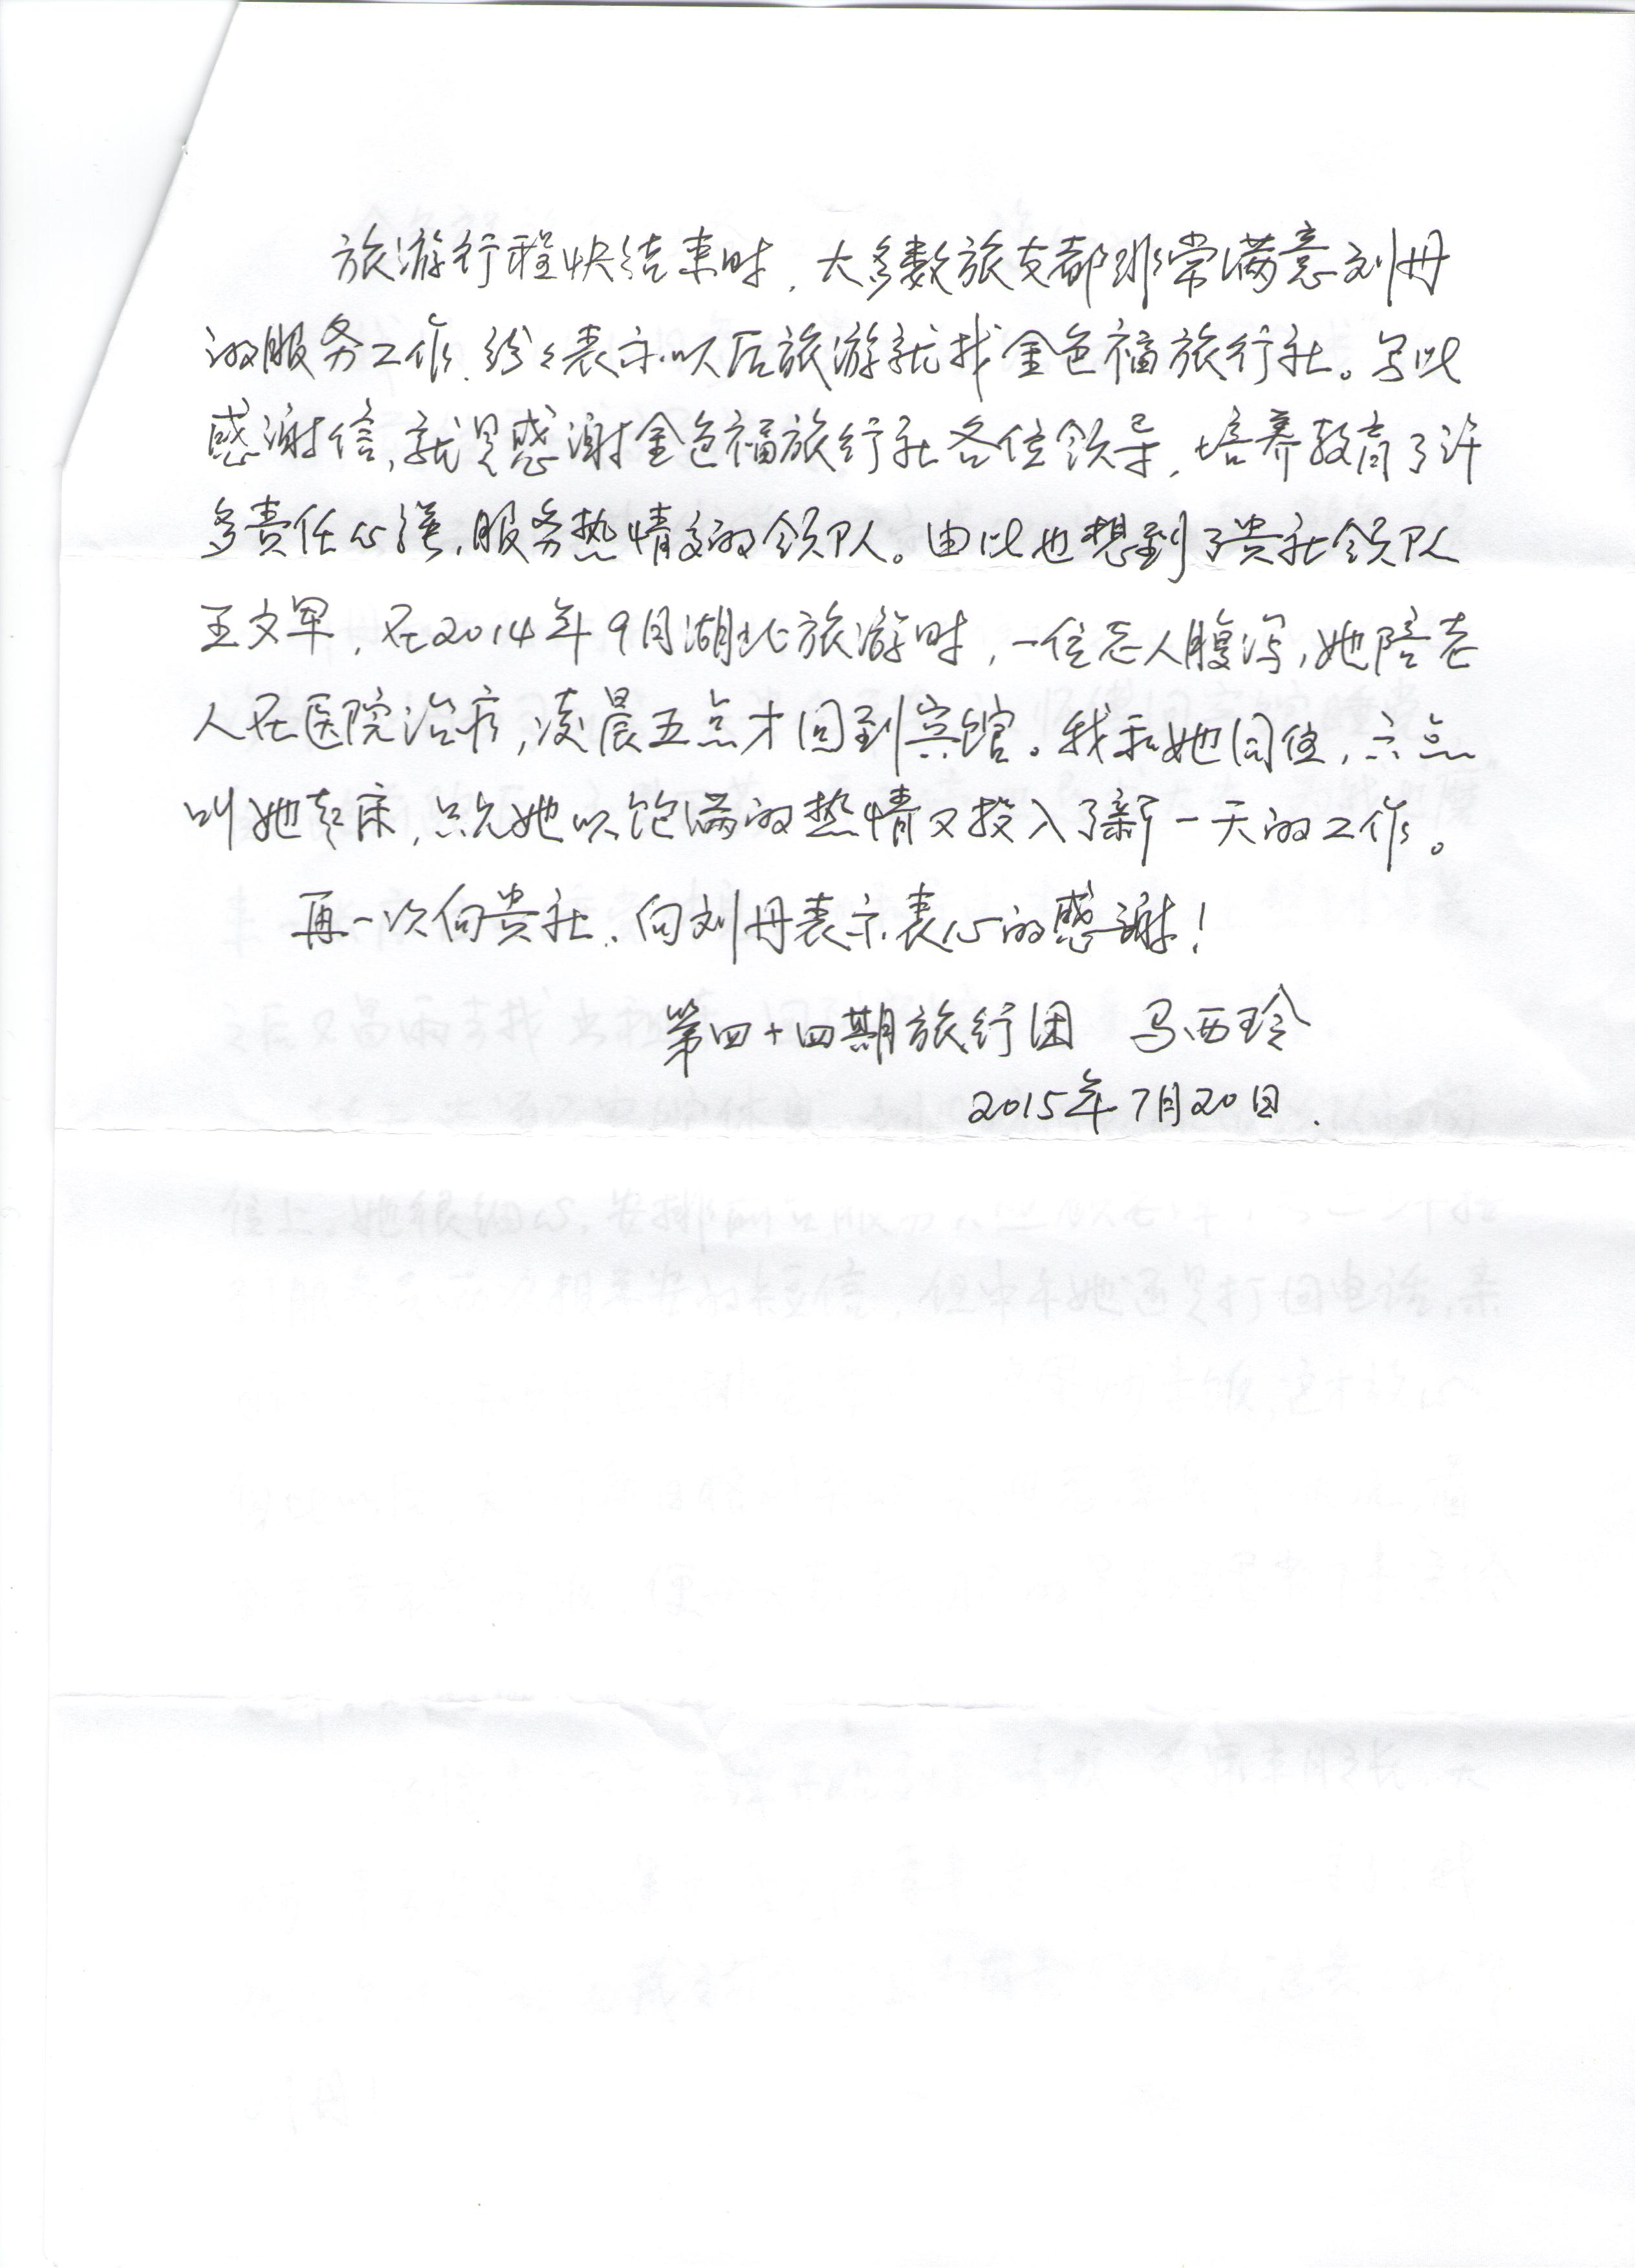 旅游行程快结束时，大多数旅友都非常满意刘丹
的服务工作、纷纷表示以后旅游就找金色福旅行社。写此
感谢信，就是感谢金色福旅行社各位领导，培养教育了许
多责任心强、服务热情高的领队。由此也想到了贵社领队
王文军，在2014年9月湖北旅游时，一位老人腹泻，她陪老
人在医院治疗，凌晨五点才回到宾馆。我和她同住，六点
叫她起床，只见她以饱满的热情又投入了新一天的工作。
再一次向贵社、向刘丹表示衷心的感谢！
第四十四期旅行团 马西玲
2015年7月20日.